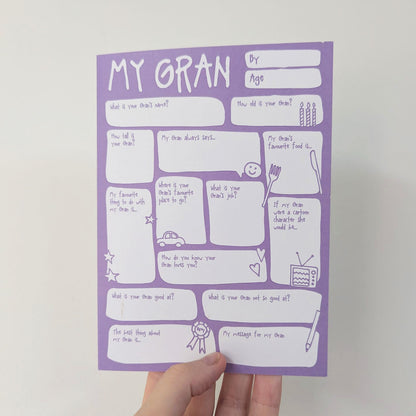 MY GRAN
By
Age
What is your Gran's name?
How old is your Gran?
How tall is
your Gran?
My Gran always says...
My Gran's
favourite food is...
My favourite
thing to do with
my Gran is...
Where is your
Gran's favourite
place to go?
What is your
Gran's job?
If my Gran
were a cartoon
character she
would be...
How do you know your
Gran loves you?
What is your Gran good at?
What is your Gran not so good at?
The best thing about
my Gran is...
My message for my Gran